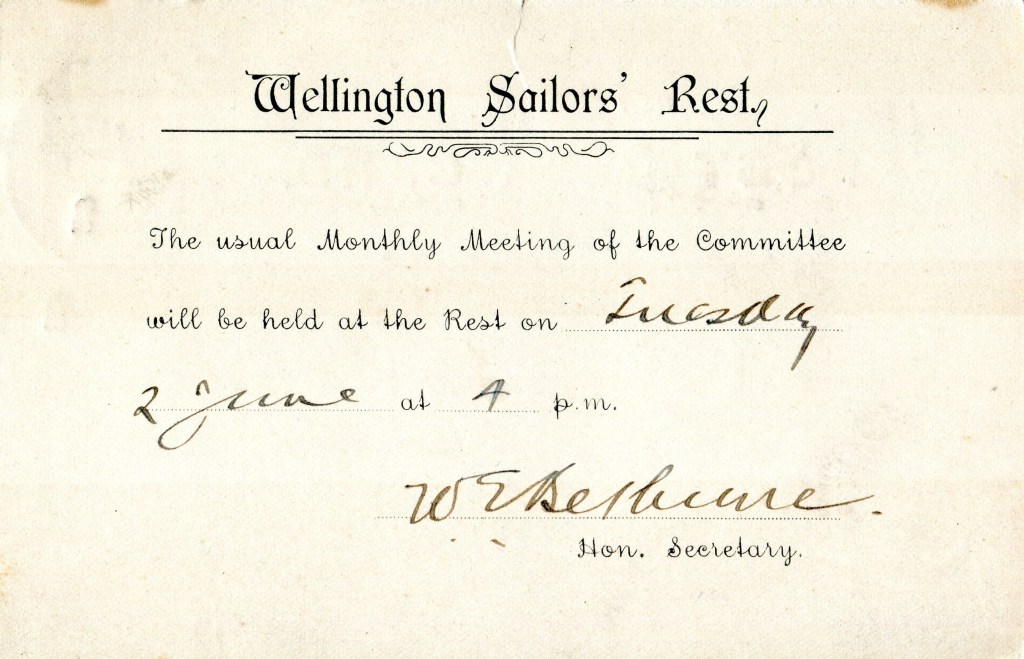 Wellington Sailors' Rest.
The usual Monthly Meeting of the Committee
will be held at the Rest on Tuesday
2 June at 4 p.m.
W E Bethune.
Hon. Secretary.